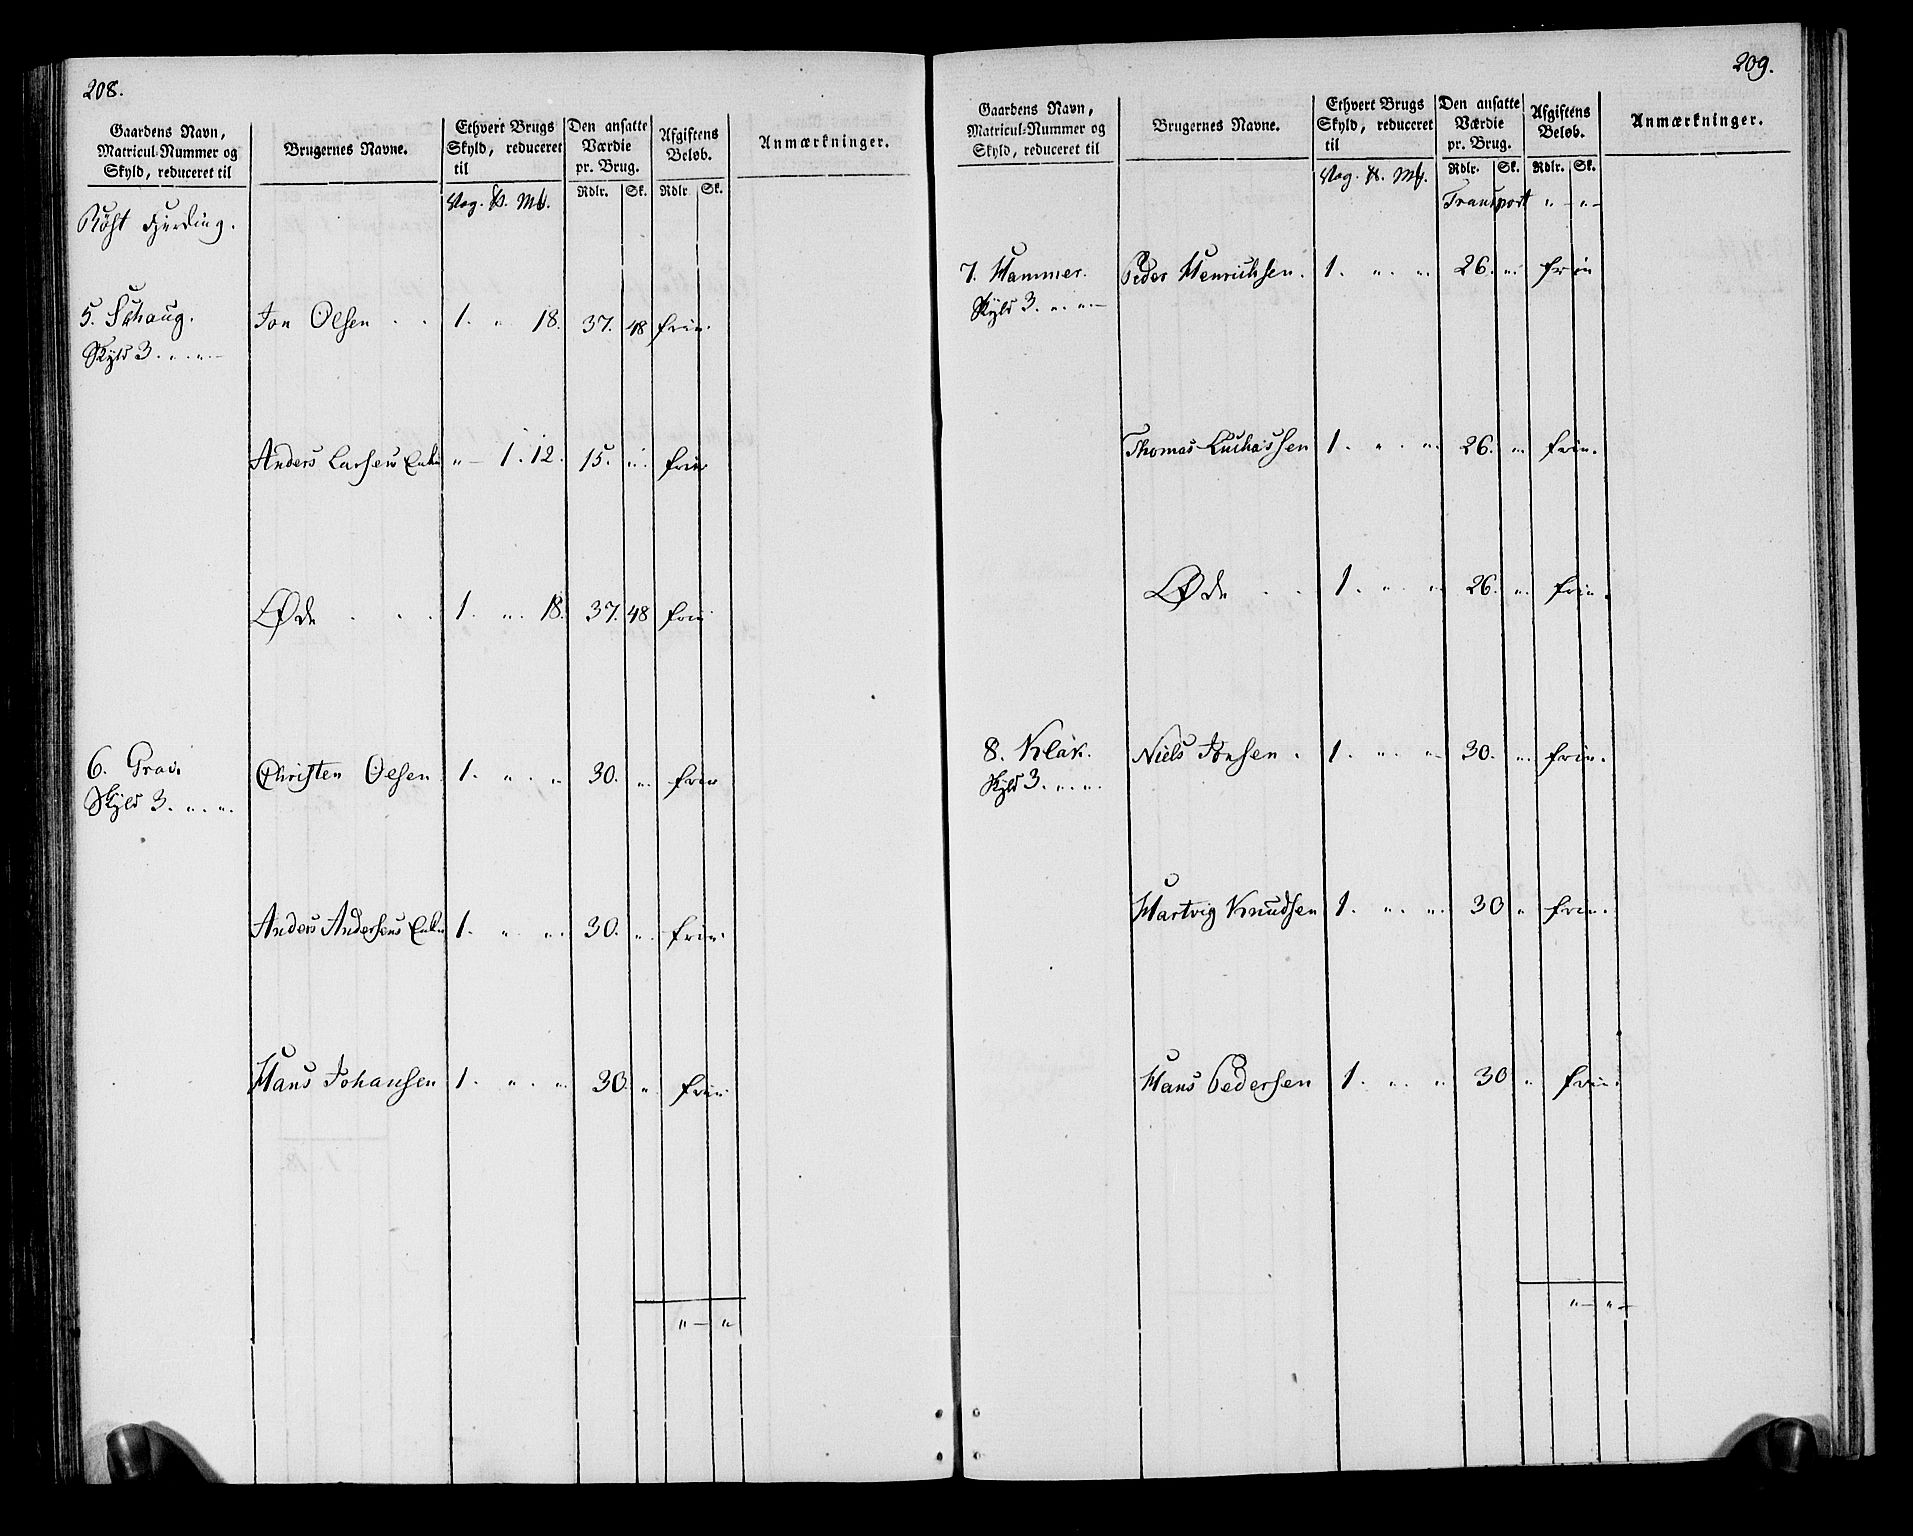 208.
Gaardens Navn, Matricul-Nummer og Skyld, reduceret til
Brugernes Navne.
Ethvert Brugs Skyld, reduceret til
Den ansatte Værdie pr. Brug.
Afgiftens Beløb.
Anmærkninger.
Vog. Mk.
Rdlr. Sk. Rdlr. Sk.
Fjerding.
5. Schaug. Jon Olsen . . 1. " 18. 37. 48 frie.
Skyld 3. ". ".
Anders Larsens Enke " 1. 12. 15. ". frie
Øde . . . 1. ". 18. 37. 48 frie
6. Grav. Christen Olsen. 1. " " 30. ". frie
Skyld 3. ". ".
Anders Andersens Enke 1. " ". 30. ". frie.
Hans Johansen 1. " " 30. " frie
" — "
209.
Gaardens Navn, Matricul-Nummer og Skyld, reduceret til
Brugernes Navne.
Ethvert Brugs Skyld, reduceret til
Den ansatte Værdie pr. Brug.
Afgiftens Beløb.
Anmærkninger.
Vog. Mk.
Rdlr. Sk. Rdlr. Sk.
Transport " — " —
7. Hammer. Peder Henrichsen. 1. " " 26. " frie
Skyld 3. ". ".
Thomas Luchassen 1. " ". 26. " frie.
Øde . . 1. " " 26. ". frie.
8. Klak. Niels Jonsen. 1. " " 30. ". frie.
Skyld 3. ". ".
Hartvig Knudsen 1. " ". 30 " frie.
Hans Pedersen 1. ". " 30 " frie.
" — " —